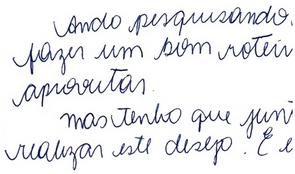 Ando pesquisando,
fazer um bom rotei
aproveitar.
mas tenho que jun
realizar este desejo. E e